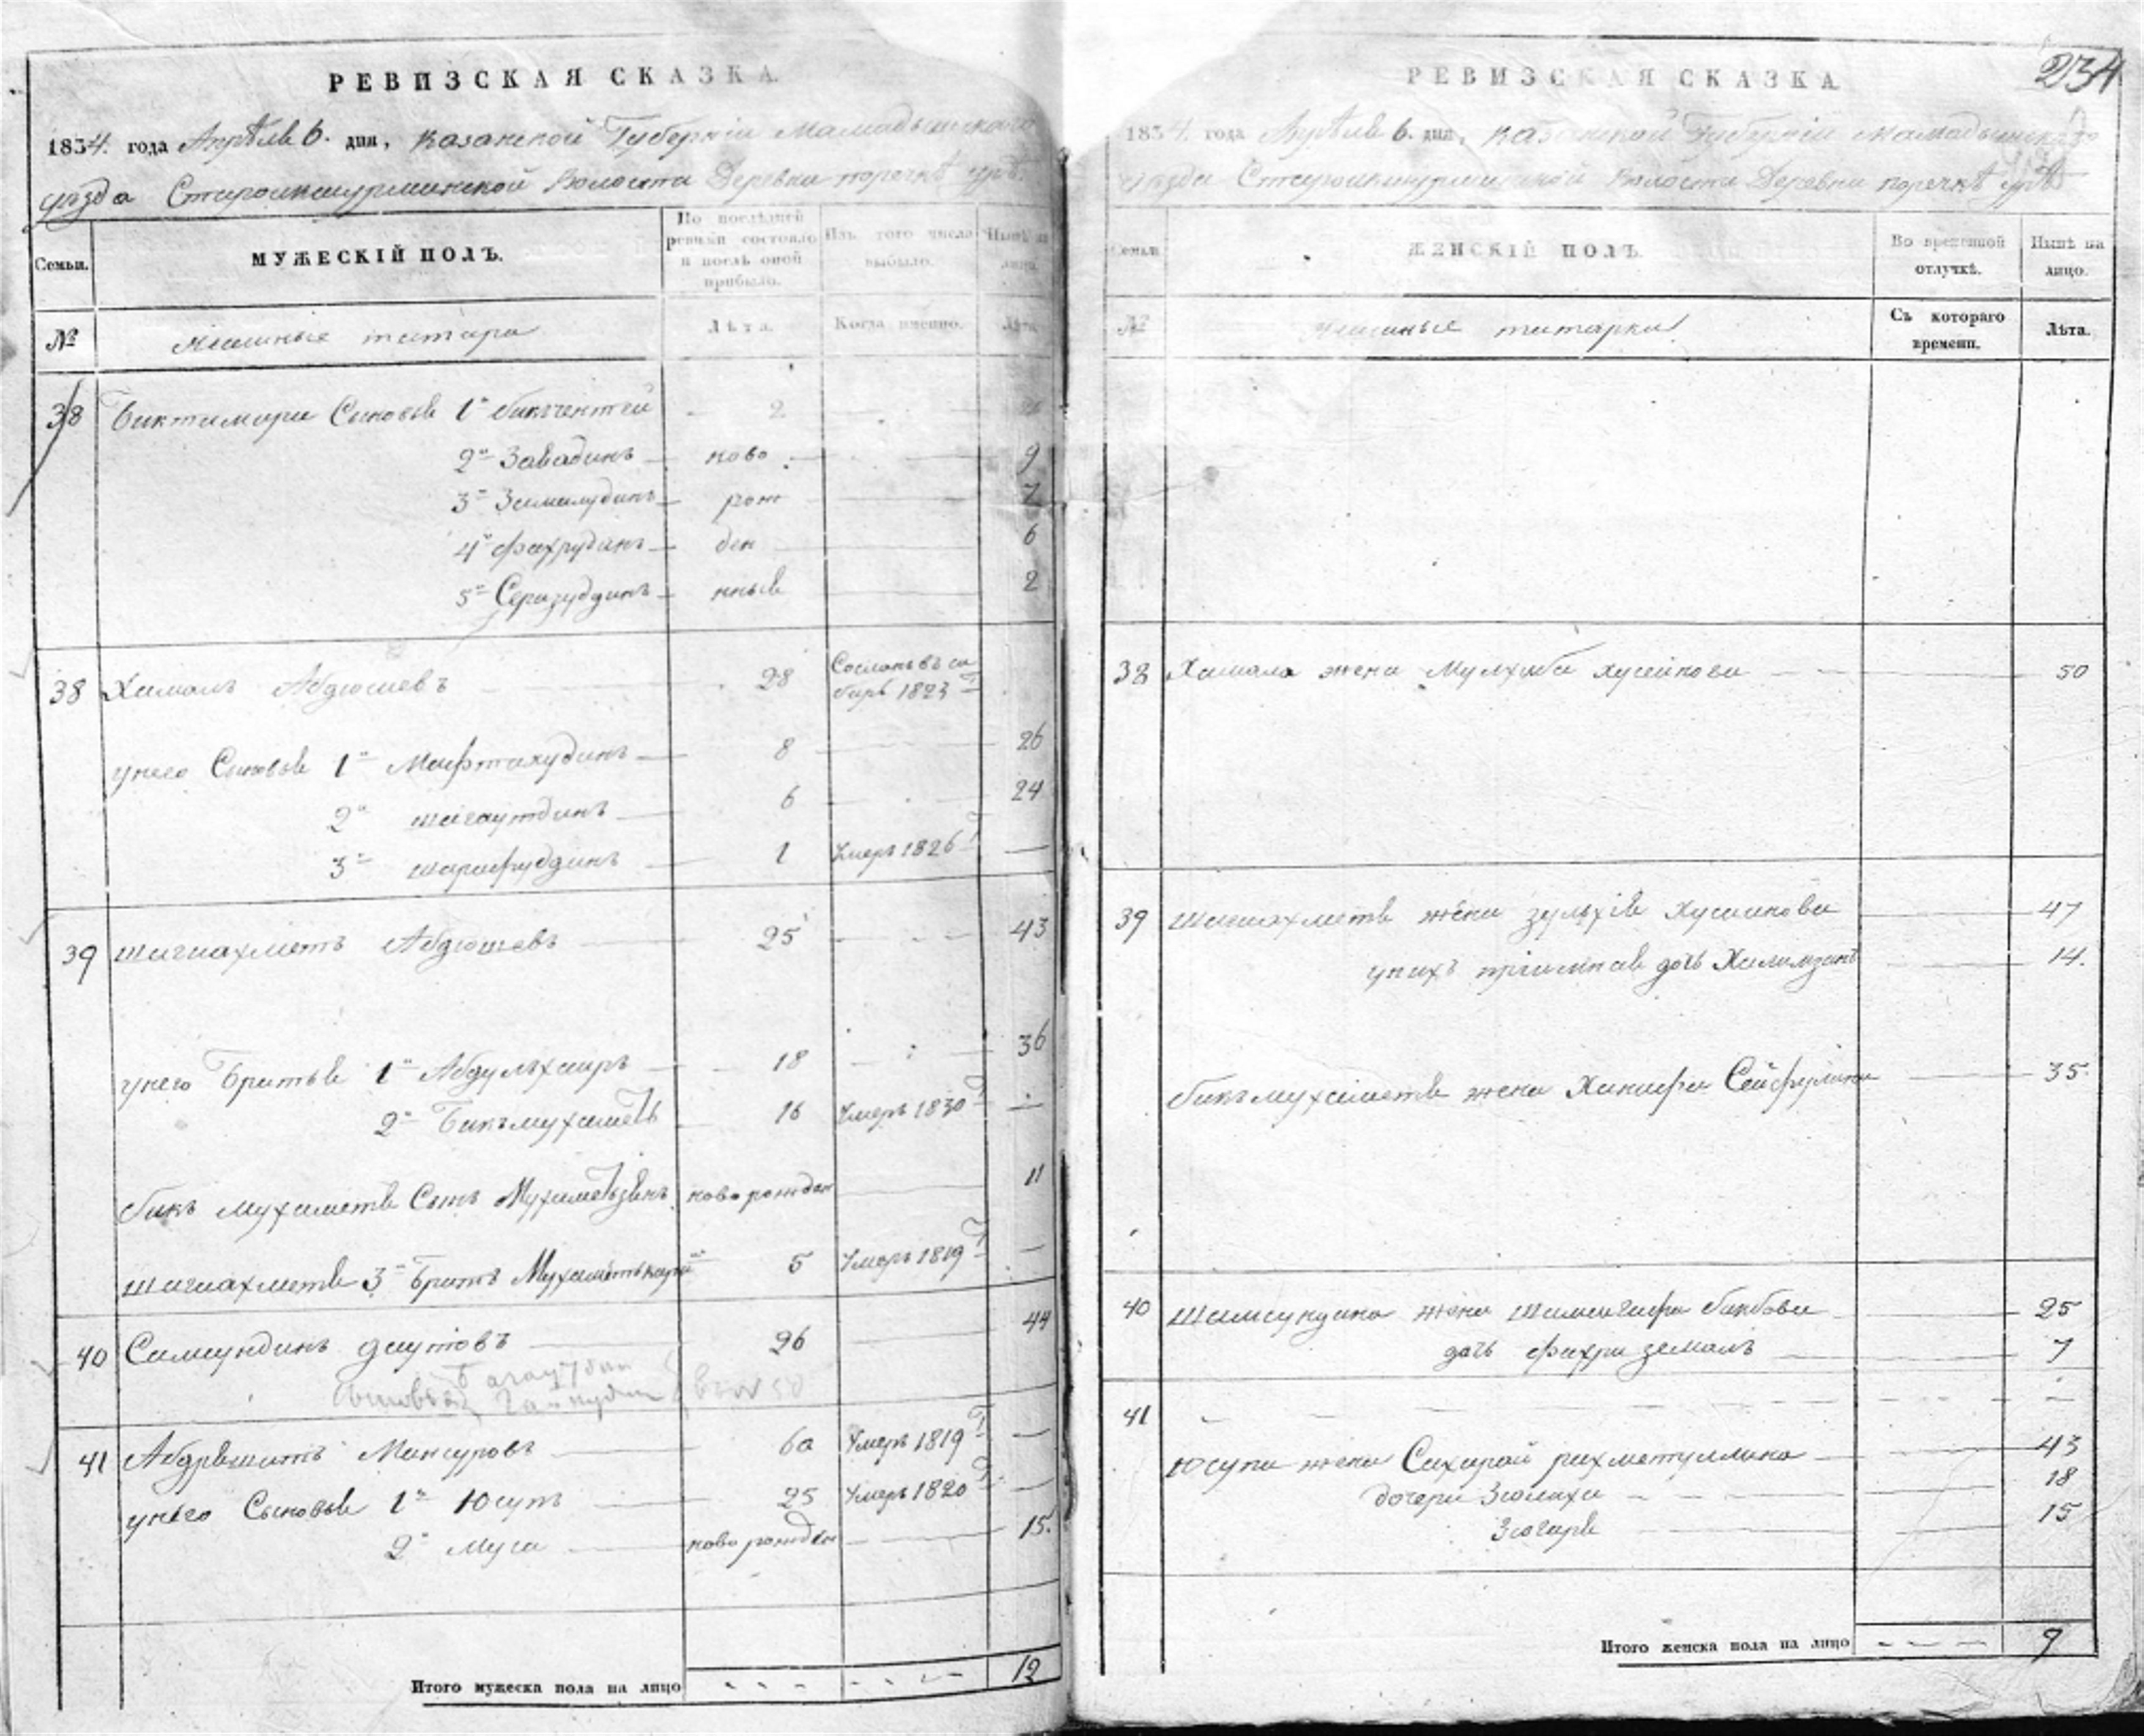 РЕВИЗСКАЯ СКАЗКА.
1834. года Апрѣля 6. дня, Казанской Губерніи Мамадышскаго
уѣзда Староикшурминской Волости Деревни поречкѣ
Семьи.
МУЖЕСКІЙ ПОЛЪ.
По послѣдней ревизіи состояло и послѣ оной прибыло.
Изъ того числа выбыло.
Нынѣ на лицо.
№
татара
Лѣта.
Когда именно.
Лѣта.
38 Биктимира Сыновья 1й бикчентей 2
2й Завадинъ ново 9
3й Зималудинъ рож 7
4й Фахрудинъ ден 6
5й нные 2
38 Хамалъ Абдюшевъ 28 Сосланъ въ си
бирь 1823 Г
унего Сыновья 1й Мифтахудинъ 8 26
2й шигаутдинъ 6 24
3й шарафуддинъ 1 Умеръ 1826 Г —
39 шагиахметъ Абдюшевъ 25 43
унего Братья 1й Абдулхаиръ 18 36
2й Бикъмухаметъ 16 Умеръ 1830 Г —
бикъ мухаметя Сынъ Мухаметзянъ ново рожден 11
шагиахметя 3й Братъ 5 Умеръ 1819 Г —
40 Самсундинъ даутовъ 26 44
Сыновья
41 Абдряшитъ Мансуровъ 60 Умеръ 1819 Г —
унего Сыновья 1й Юсупъ 25 Умеръ 1820 Г —
2й Муса ново рожден 15.
Итого мужеска пола на лицо - - - - - - 12
234
РЕВИЗСКАЯ СКАЗКА
1834. года Апрѣля 6. дня, Казанской Губерніи Мамадышскаго
уѣзда Староикшурминской Волости Деревни поречкѣ
Семьи
ЖЕНСКІЙ ПОЛЪ.
Во временной отлучкѣ.
Нынѣ на лицо.
№
татарки
Съ котораго времени.
Лѣта.
38 Хамала жена хусеинова 50
39 Шагиахметя жена зульхія Хусаинова 47
унихъ пріимная дочь 14.
бикъмухаметя жена Ханифа Сейфулина 35.
40 Шамсундина жена 25
дочь Фахри земалъ 7
41 - - - - - -
Юсупа жена рахметуллина 43
дочери Зюлиха 18
15
Итого женска пола на лицо - - - 9